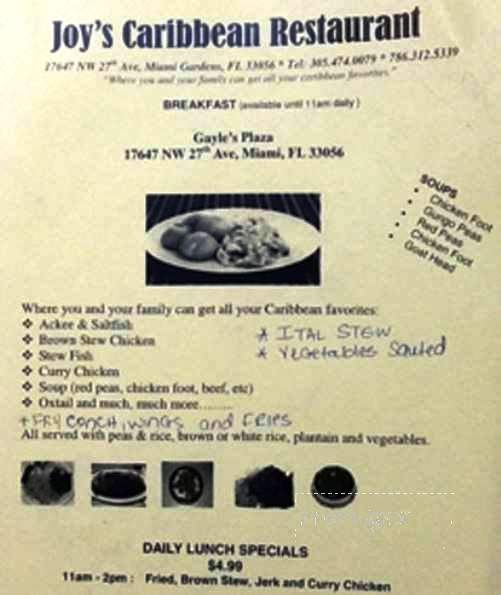 Joy's Caribbean Restaurant
17647 NW 27th Ave, Miami Gardens, FL 33056 * Tel: 305.474.0079 * 786.312.5339
"Where you and your family can get all your caribbean favorites."
BREAKFAST (available until 11am daily)
Gayle's Plaza
17647 NW 27th Ave, Miami, FL 33056
SOUPS
• Chicken Foot
• Gungo Peas
• Red Peas
• Chicken Foot
• Goat Head
Where you and your family can get all your Caribbean favorites:
❖ Ackee & Saltfish
❖ Brown Stew Chicken
❖ Stew Fish
❖ Curry Chicken
❖ Soup (red peas, chicken foot, beef, etc)
❖ Oxtail and much, much more........
* ITAL STEW
* Vegetables Sauted
+ FRY CONCH, WINGS and FRIES
All served with peas & rice, brown or white rice, plantain and vegetables.
DAILY LUNCH SPECIALS
$4.99
11am - 2pm : Fried, Brown Stew, Jerk and Curry Chicken